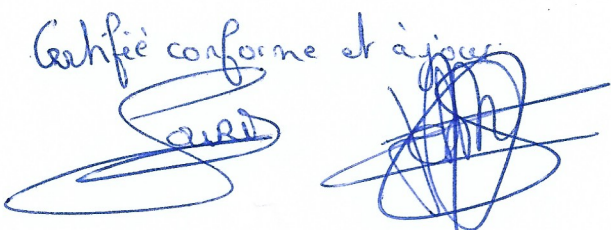 Certifié conforme et à jour